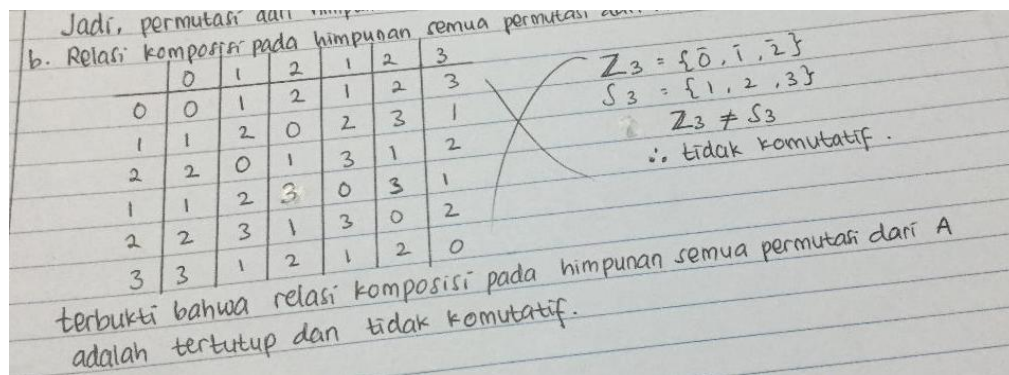 Jadi, permutasi dari
b. Relasi komposisi pada himpunan semua permutasi
0 1 2 1 2 3
0 0 1 2 1 2 3
1 1 2 0 2 3 1
2 2 0 1 3 1 2
1 1 2 3 0 3 1
2 2 3 1 3 0 2
3 3 1 2 1 2 0
Z3 = {0̄, 1̄, 2̄}
S3 = {1, 2, 3}
Z3 ≠ S3
∴ tidak komutatif.
terbukti bahwa relasi komposisi pada himpunan semua permutasi dari A
adalah tertutup dan tidak komutatif.